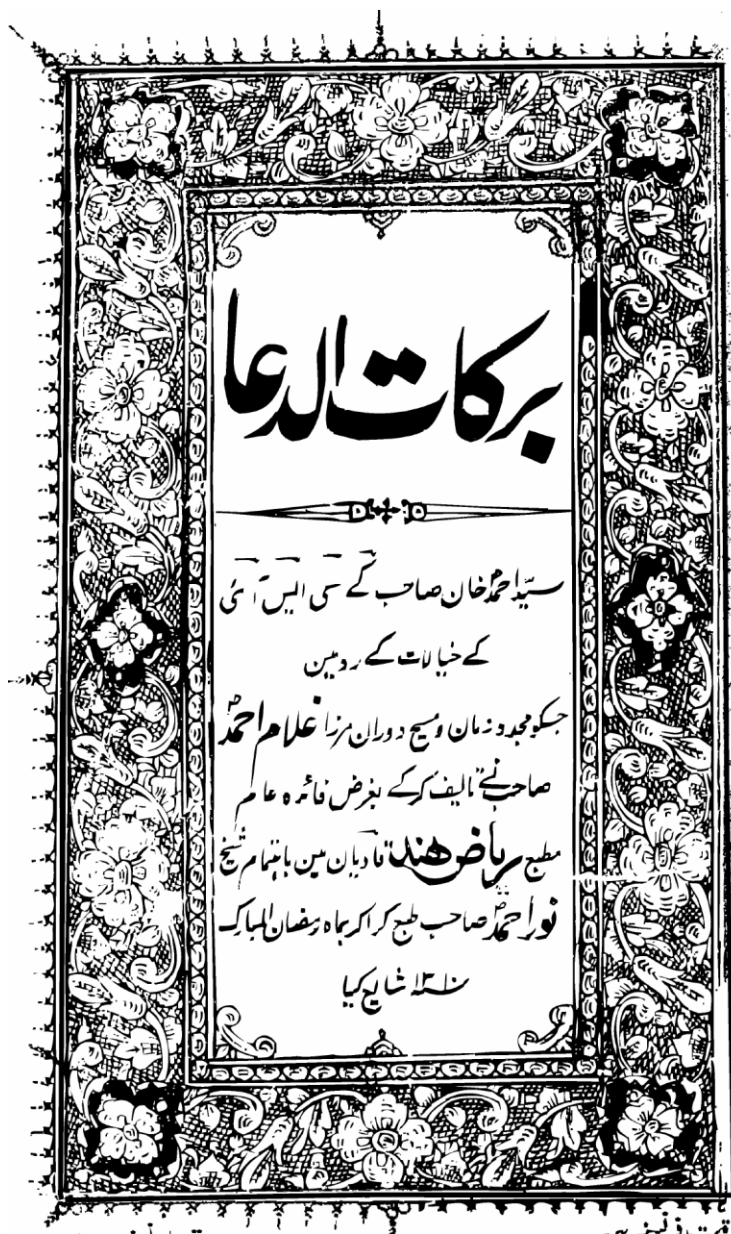 برکات الدعا
سیّد احمدؐ خان صاحب کے سی ایس آئی
کے خیالات کے رد مین
جسکو مجدد زمان و مسیح دوران مرزا غلام احمدؐ
صاحب نے تالیف کرکے بغرض فائدہ عام
مطبع ریاض ھند قادیان مین باہتمام شیخ
نور احمدؐ صاحب طبع کراکر بماہ رمضان المبارک
شایع کیا
قیمت فی نسخہ